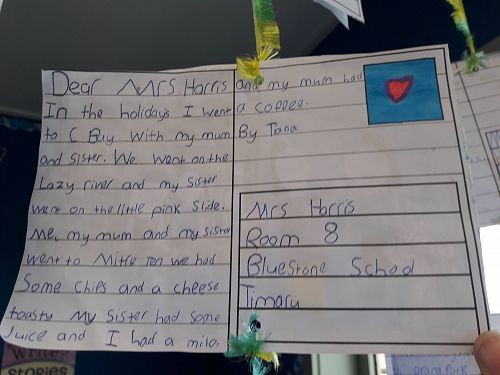 Dear Mrs Harris
In the holidays I went
to C Bay with my mum
and sister. We went on the
Lazy river and my sister
went on the little pink slide.
Me, my mum and my sister
went to Mitre Ten we had
Some chips and a cheese
toasty My Sister had some
Juice and I had a milo.
and my mum had
a coffee.
By Tana
Mrs Harris
Room 8
Bluestone School
Timaru
Write
STORIES